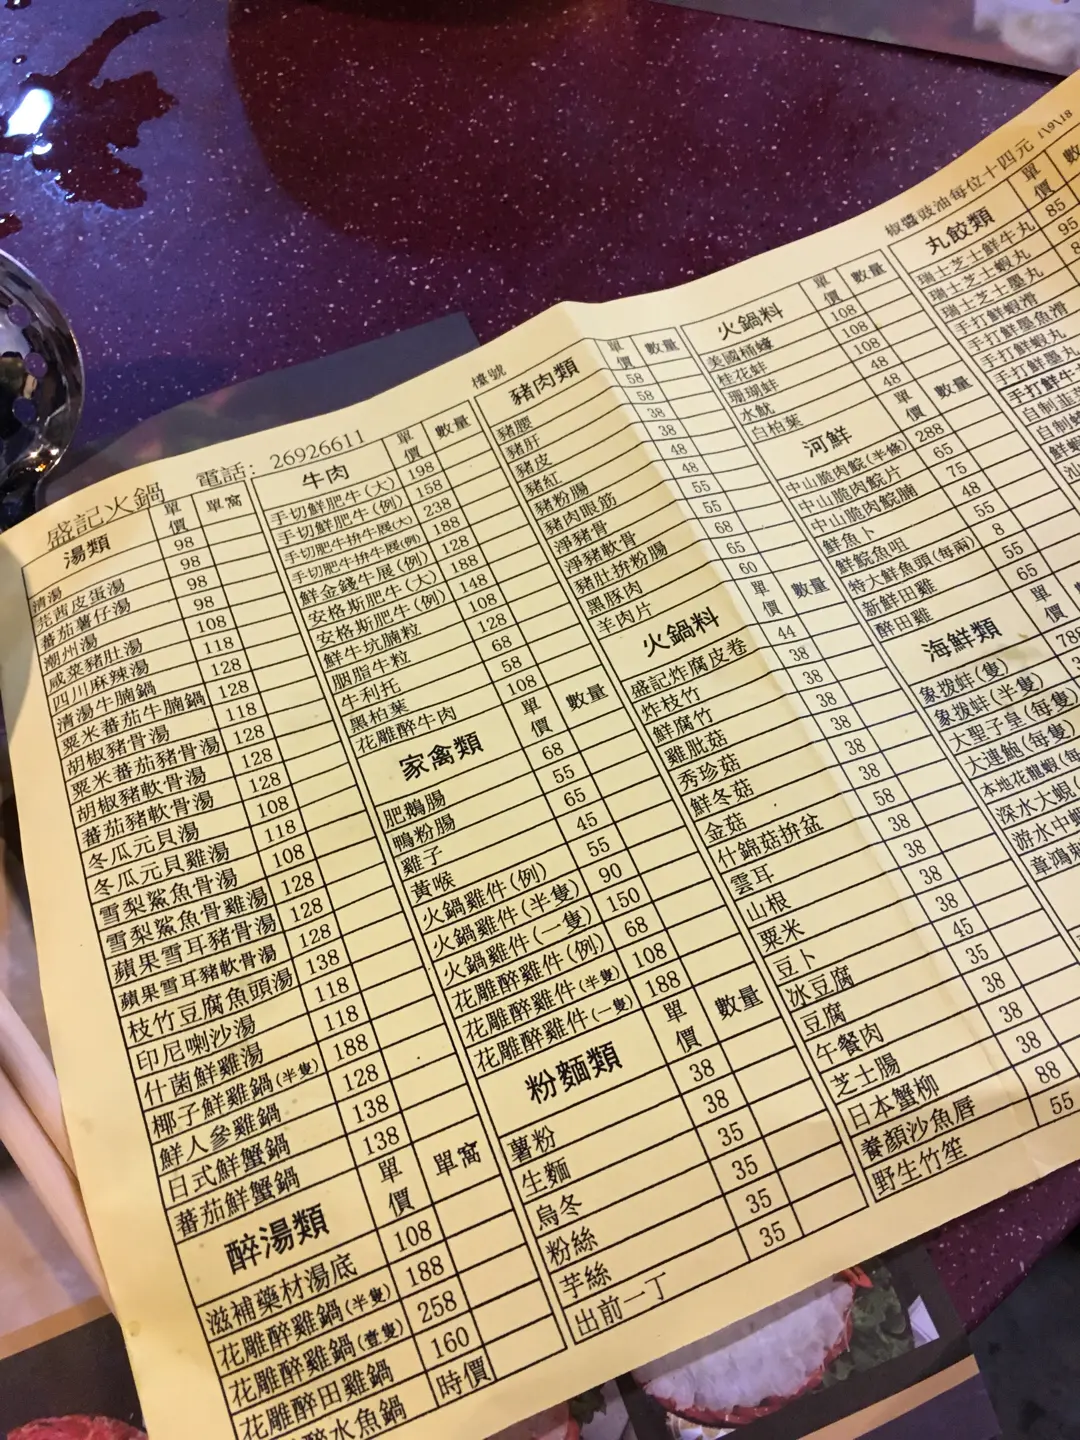 盛記火鍋 電話: 26926611 檯號 椒醬豉油每位十四元 1\9\18
湯類 單價 單窩
清湯 98
芫茜皮蛋湯 98
蕃茄薯仔湯 98
潮州湯 98
咸菜豬肚湯 108
四川麻辣湯 118
清湯牛腩鍋 128
粟米蕃茄牛腩鍋 128
胡椒豬骨湯 118
粟米蕃茄豬骨湯 128
胡椒豬軟骨湯 128
蕃茄豬軟骨湯 128
冬瓜元貝湯 108
冬瓜元貝雞湯 118
雪梨鯊魚骨湯 108
雪梨鯊魚骨雞湯 128
蘋果雪耳豬骨湯 128
蘋果雪耳豬軟骨湯 128
枝竹豆腐魚頭湯 138
印尼喇沙湯 118
什菌鮮雞湯 118
椰子鮮雞鍋(半隻) 188
鮮人參雞鍋 128
日式鮮蟹鍋 138
蕃茄鮮蟹鍋 138
醉湯類 單價 單窩
滋補藥材湯底 108
花雕醉雞鍋(半隻) 188
花雕醉雞鍋(壹隻) 258
花雕醉田雞鍋 160
醉水魚鍋 時價
牛肉 單價 數量
手切鮮肥牛(大) 198
手切鮮肥牛(例) 158
手切肥牛拚牛展(大) 238
手切肥牛拚牛展(例) 188
鮮金錢牛展(例) 128
安格斯肥牛(大) 188
安格斯肥牛(例) 148
鮮牛坑腩粒 108
胭脂牛粒 128
牛利托 68
黑柏葉 58
花雕醉牛肉 108
家禽類 單價 數量
肥鵝腸 68
鴨粉腸 55
雞子 65
黃喉 45
火鍋雞件(例) 55
火鍋雞件(半隻) 90
火鍋雞件(一隻) 150
花雕醉雞件(例) 68
花雕醉雞件(半隻) 108
花雕醉雞件(一隻) 188
粉麵類 單價 數量
薯粉 38
生麵 38
烏冬 35
粉絲 35
芋絲 35
出前一丁 35
豬肉類 單價 數量
豬腰 58
豬肝 58
豬皮 38
豬紅 38
豬粉腸 48
豬肉眼筋 48
淨豬骨 55
淨豬軟骨 55
豬肚拚粉腸 68
黑豚肉 65
羊肉片 60
火鍋料 單價 數量
盛記炸腐皮卷 44
炸枝竹 38
鮮腐竹 38
雞肶菇 38
秀珍菇 38
鮮冬菇 38
金菇 38
什錦菇拚盆 58
雲耳 38
山根 38
粟米 38
豆卜 38
冰豆腐 45
豆腐 35
午餐肉 38
芝士腸 38
日本蟹柳 38
養顏沙魚唇 88
野生竹笙 55
火鍋料 單價 數量
美國桶蠔 108
桂花蚌 108
珊瑚蚌 108
水魷 48
白柏葉 48
河鮮 單價 數量
中山脆肉鯇(半條) 288
中山脆肉鯇片 65
中山脆肉鯇腩 75
鮮魚卜 48
鮮鯇魚咀 55
特大鮮魚頭(每兩) 8
新鮮田雞 55
醉田雞 65
海鮮類 單價
象拔蚌(隻)
象拔蚌(半隻)
大聖子皇(每隻)
大連鮑(每隻)
本地花龍蝦(每
深水大蜆(
游水中
章鴻
丸餃類 單價 數
瑞士芝士鮮牛丸 85
瑞士芝士蝦丸 95
瑞士芝士墨丸
手打鮮蝦滑
手打鮮墨魚滑
手打鮮蝦丸
手打鮮墨丸
手打鮮牛
自制韮
自制
鮮蝦